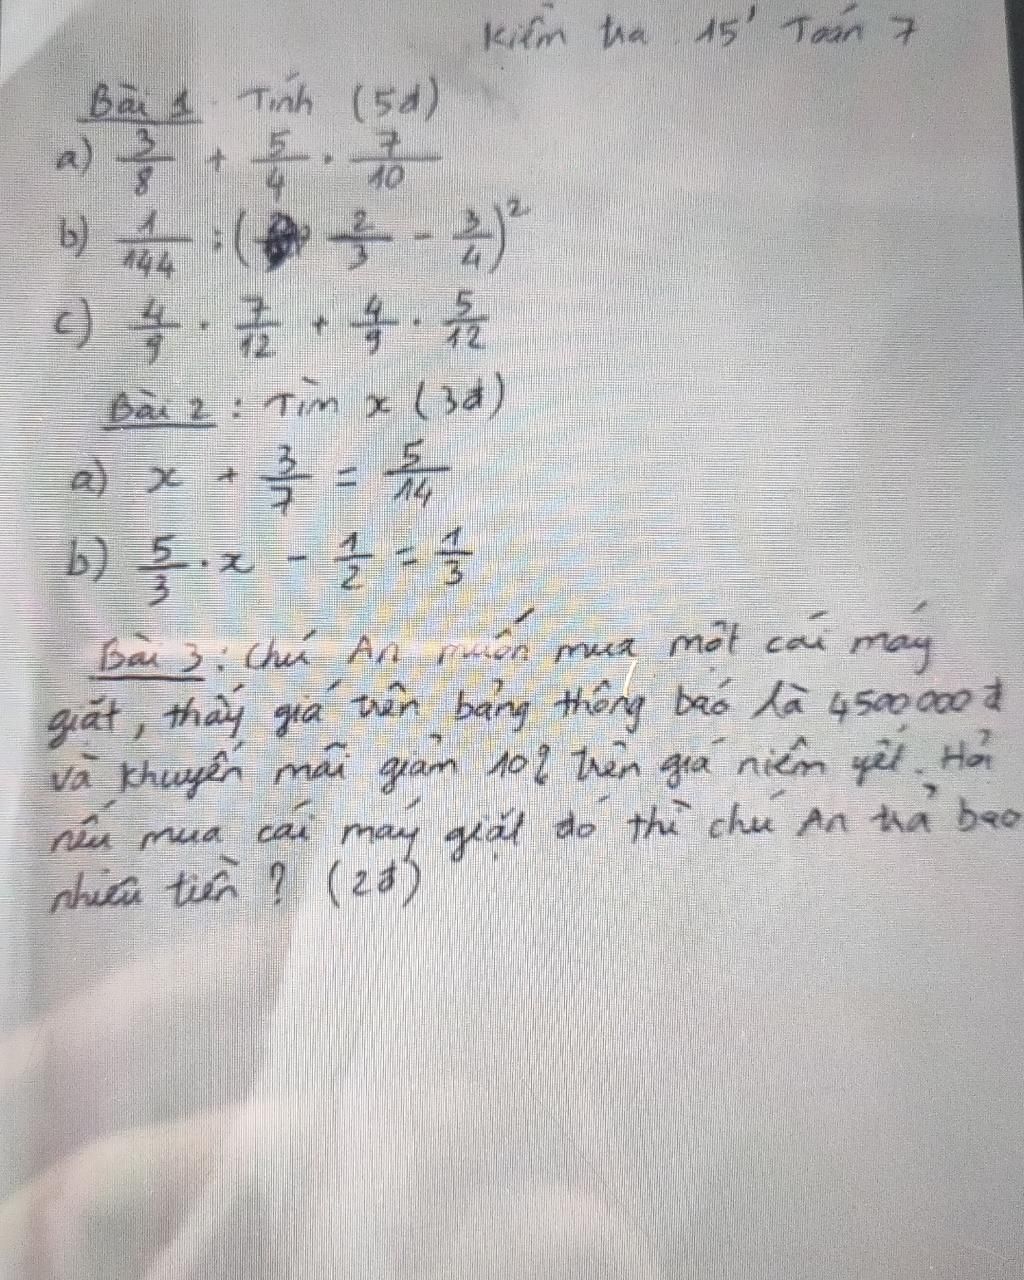 Kiểm tra 15' Toán 7
Bài 1 Tính (5đ)
a) 3/8 + 5/4 . 7/10
b) 1/144 : (2/3 - 3/4)²
c) 4/9 . 7/12 + 4/9 . 5/12
Bài 2 : Tìm x (3đ)
a) x + 3/7 = 5/14
b) 5/3 . x - 1/2 = 1/3
Bài 3 : Chú An muốn mua một cái máy
giặt, thấy giá trên bảng thông báo là 4500000 đ
và khuyến mãi giảm 10% trên giá niêm yết. Hỏi
nếu mua cái máy giặt đó thì chú An trả bao
nhiêu tiền ? (2đ)